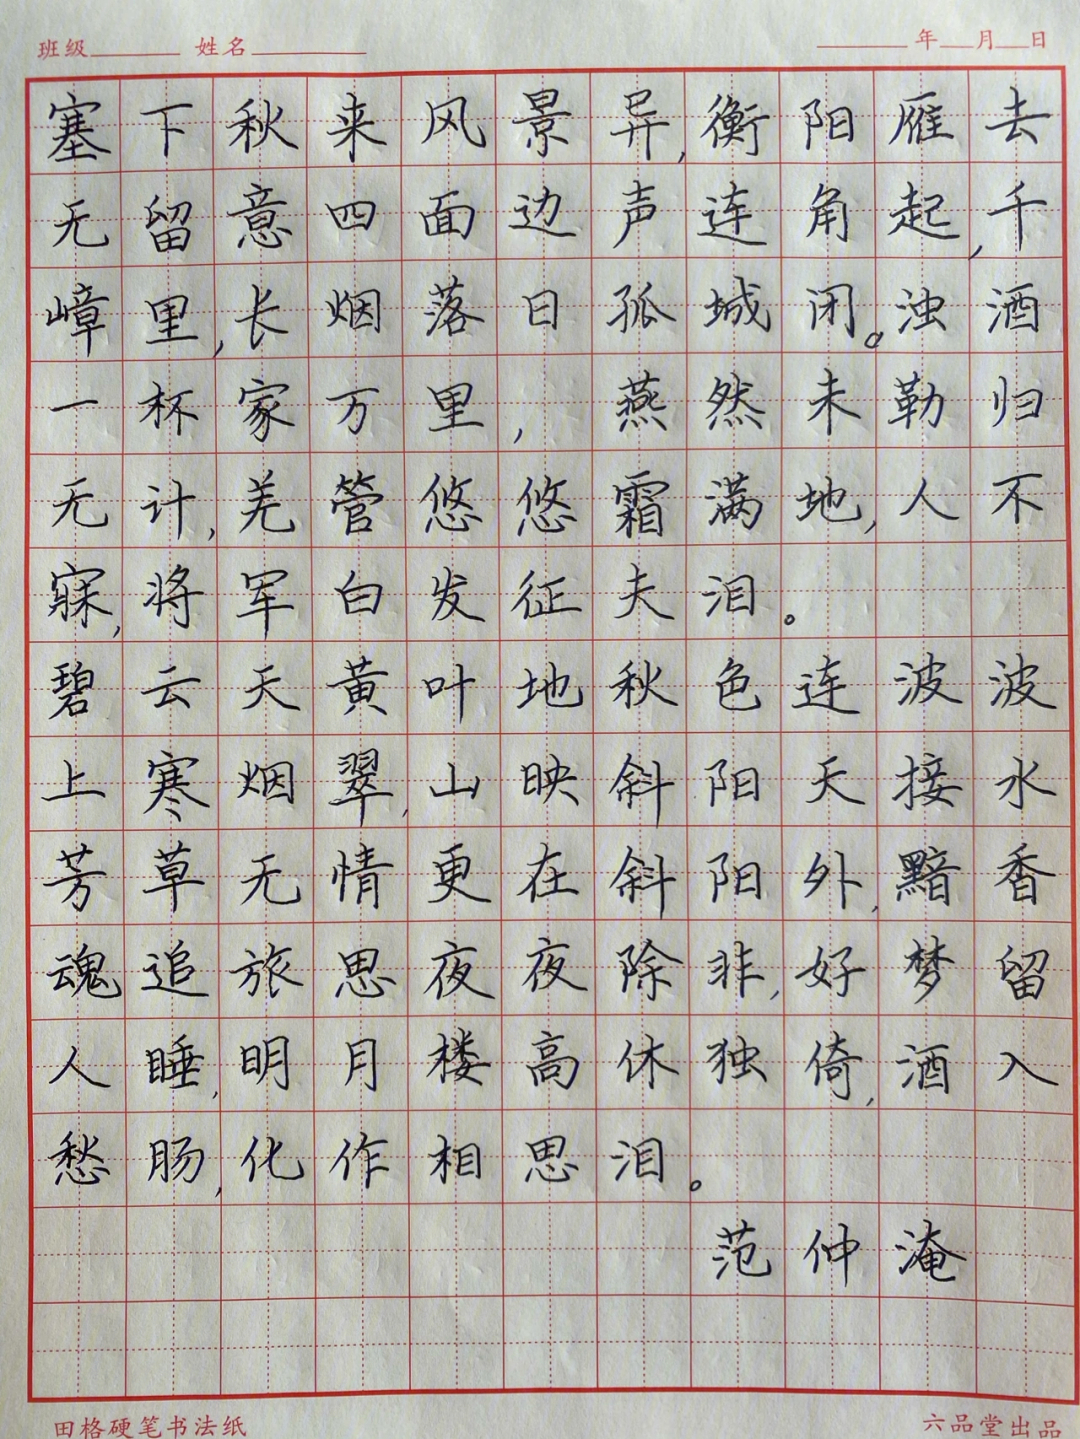 班级 姓名 年 月 日
塞下秋来风景异,衡阳雁去
无留意四面边声连角起,千
嶂里,长烟落日孤城闭。浊酒
一杯家万里,燕然未勒归
无计,羌管悠悠霜满地,人不
寐,将军白发征夫泪。
碧云天黄叶地秋色连波波
上寒烟翠,山映斜阳天接水
芳草无情更在斜阳外,黯香
魂追旅思夜夜除非,好梦留
人睡,明月楼高休独倚,酒入
愁肠,化作相思泪。
范仲淹
田格硬笔书法纸 六品堂出品